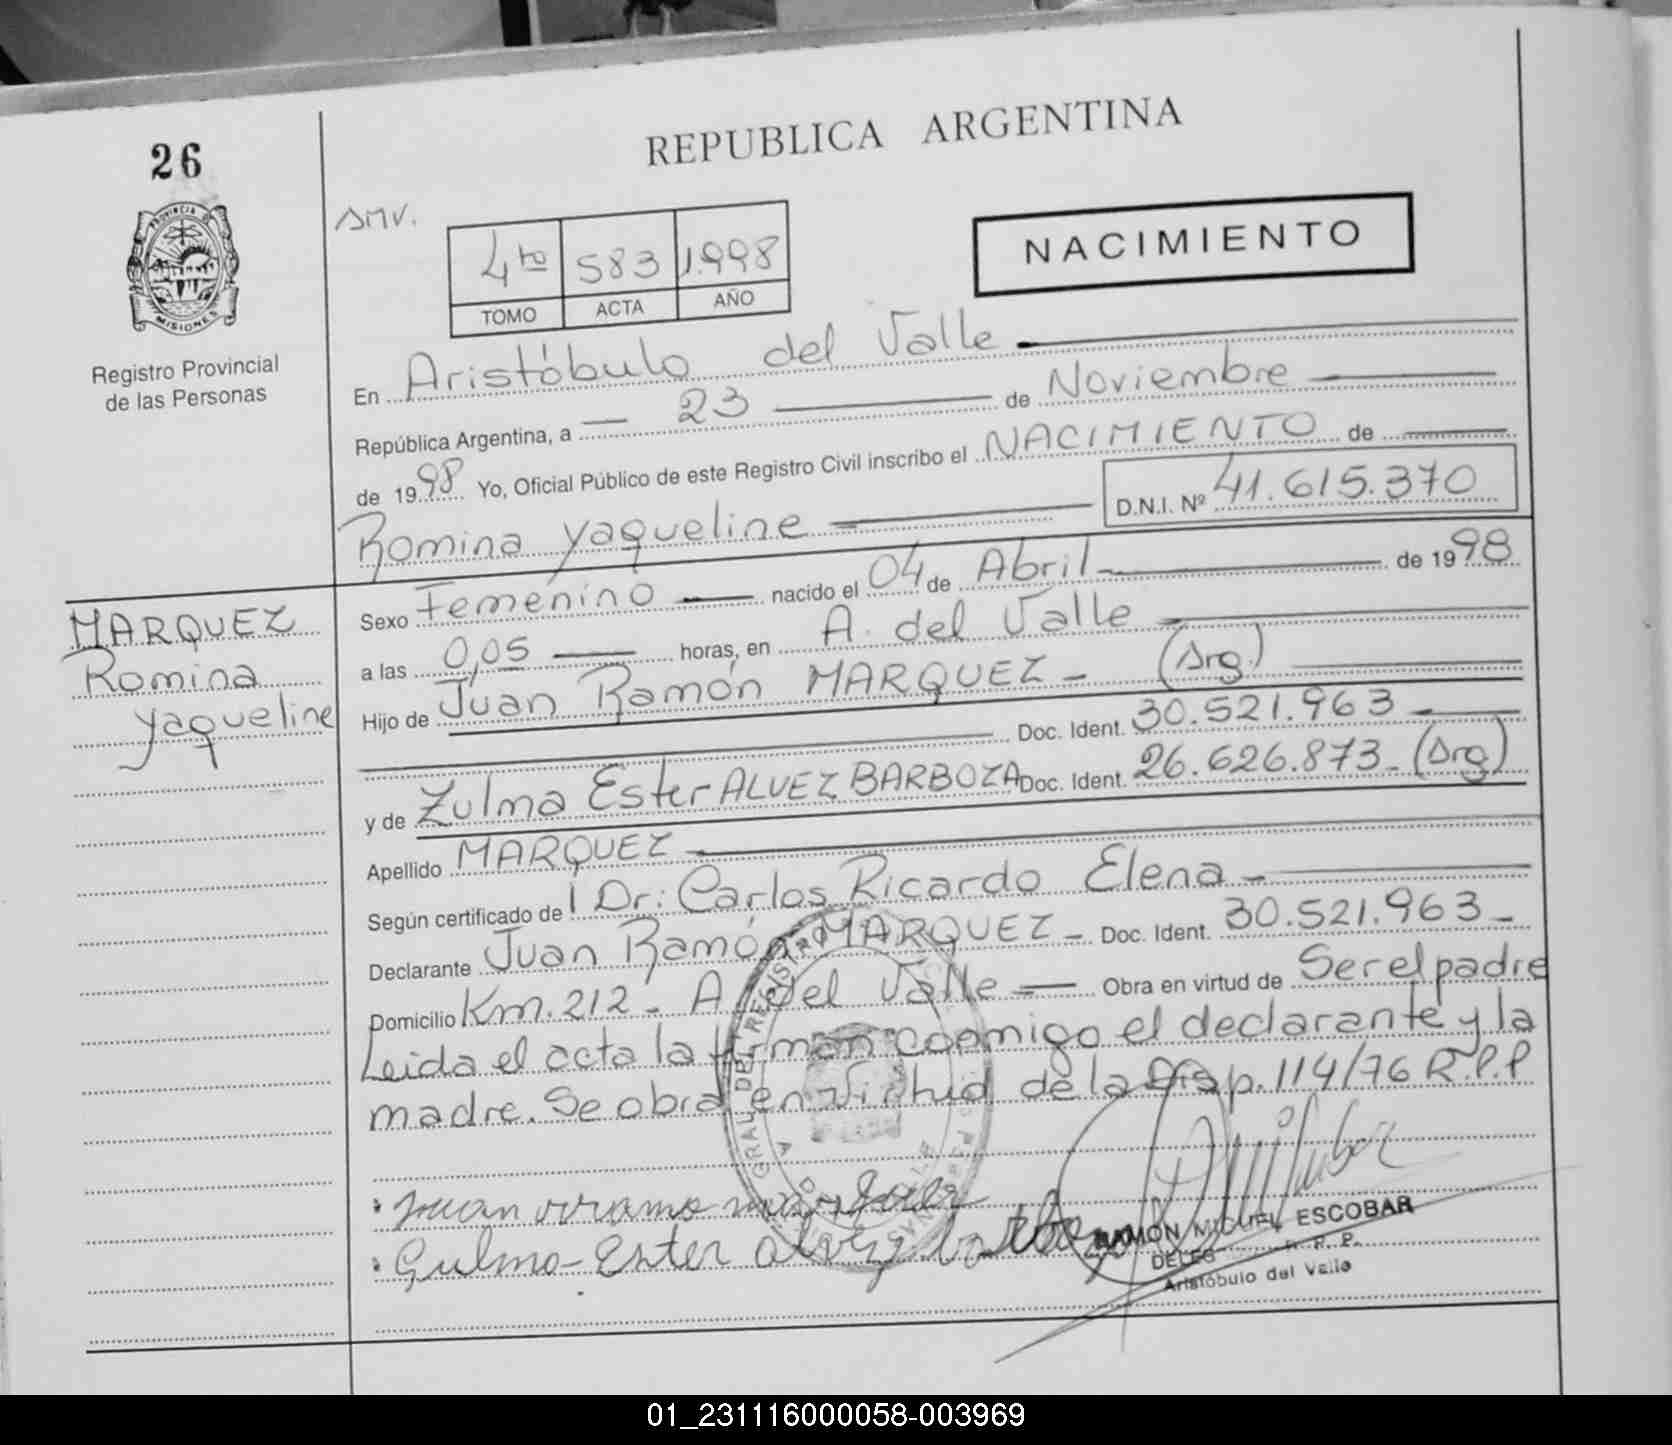 26
REPUBLICA ARGENTINA
PROVINCIA D
MISIONES
Registro Provincial
de las Personas
SMV.
4to 583 1.998
TOMO ACTA AÑO
NACIMIENTO
En Aristóbulo del Valle
República Argentina, a 23 de Noviembre
de 1998 Yo, Oficial Público de este Registro Civil inscribo el NACIMIENTO de
Romina Yaqueline D.N.I. Nº 41.615.370
MARQUEZ
Romina
Yaqueline
Sexo Femenino nacido el 04 de Abril de 1998
a las 0,05 horas, en A. del Valle
Hijo de Juan Ramón MARQUEZ - (Arg.)
Doc. Ident. 30.521.963
y de Zulma Ester ALVEZ BARBOZA Doc. Ident. 26.626.873 - (Arg)
Apellido MARQUEZ
Según certificado de Dr: Carlos Ricardo Elena -
Declarante Juan Ramón MARQUEZ - Doc. Ident. 30.521.963 -
Domicilio Km. 212 - A. del Valle Obra en virtud de Ser el padre
Leida el acta la firman conmigo el declarante y la
madre. Se obra en virtud de la Disp. 114/76 R.P.P
Juan rramo marquez
Gulma Ester alvez
RAMON MIGUEL ESCOBAR
DELEG R. P. P.
Aristóbulo del Valle
01_231116000058-003969